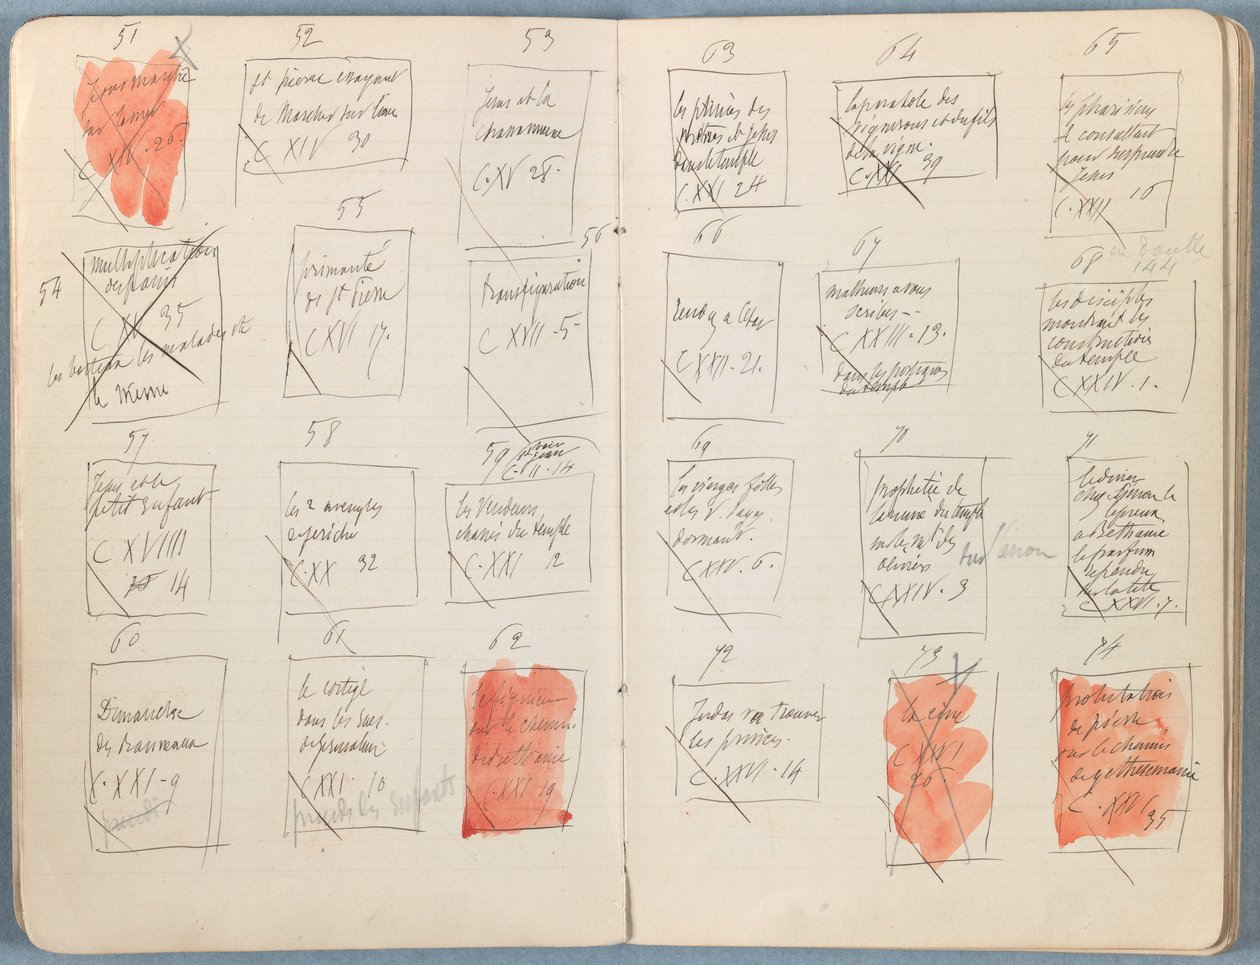 51
Jesus marche
sur la mer
C XIV · 26
52
St pierre essayant
de marcher sur l'eau
C XIV 30
53
Jesus et la
Chananeene
C · XV 28 -
54
multiplication
des pains
C XV 35
les malades et
le même
55
primauté
de St Pierre
C XVI 17.
56
transfiguration
C XVII - 5 -
57
Jesus et le
petit enfant
C XVIIII
14
58
les 2 aveugles
de jericho
C · XX 32
59
voir
St Jean
C · II · 14
les Vendeurs
chassés du temple
C · XXI 12
60
Dimanche
des Rameaux
C · XXI - 9
61
le cortège
dans les rues
de jerusalem
C XXI 10
les enfants
62
le figuier
sur le chemin
de Bethanie
C · XXI 19
63
les princes des
prêtres et Jesus
dans le temple
C · XXI 24
64
la parabole des
vignerons et du fils
de la vigne.
C · XXI 39
65
les pharisiens
se consultent
pour surprendre
Jesus
C · XXII 16
66
Rendez a Cesar
C XXII · 21.
67
malheur a vous
scribes --
C XXIII · 13.
dans les portiques
du temple
68
en double
144
les disciples
montrant les
constructions
du temple
C XXIV · 1 .
69
les vierges folles
et les V. sages
dormant.
C XXV · 6 .
70
prophetie de
la ruine du temple
sur le mt des
oliviers
C XXIV · 3
71
le diner
chez Simon le
lepreux
a Bethanie
le parfum
repandu
sur la tête
C XXVI · 7.
72
Judas va trouver
les princes.
C · XXVI · 14
73
la cène
C XXVI
26 ·
74
prostration
de pierre
sur le chemin
de gethsemanie
C · XXVI 35